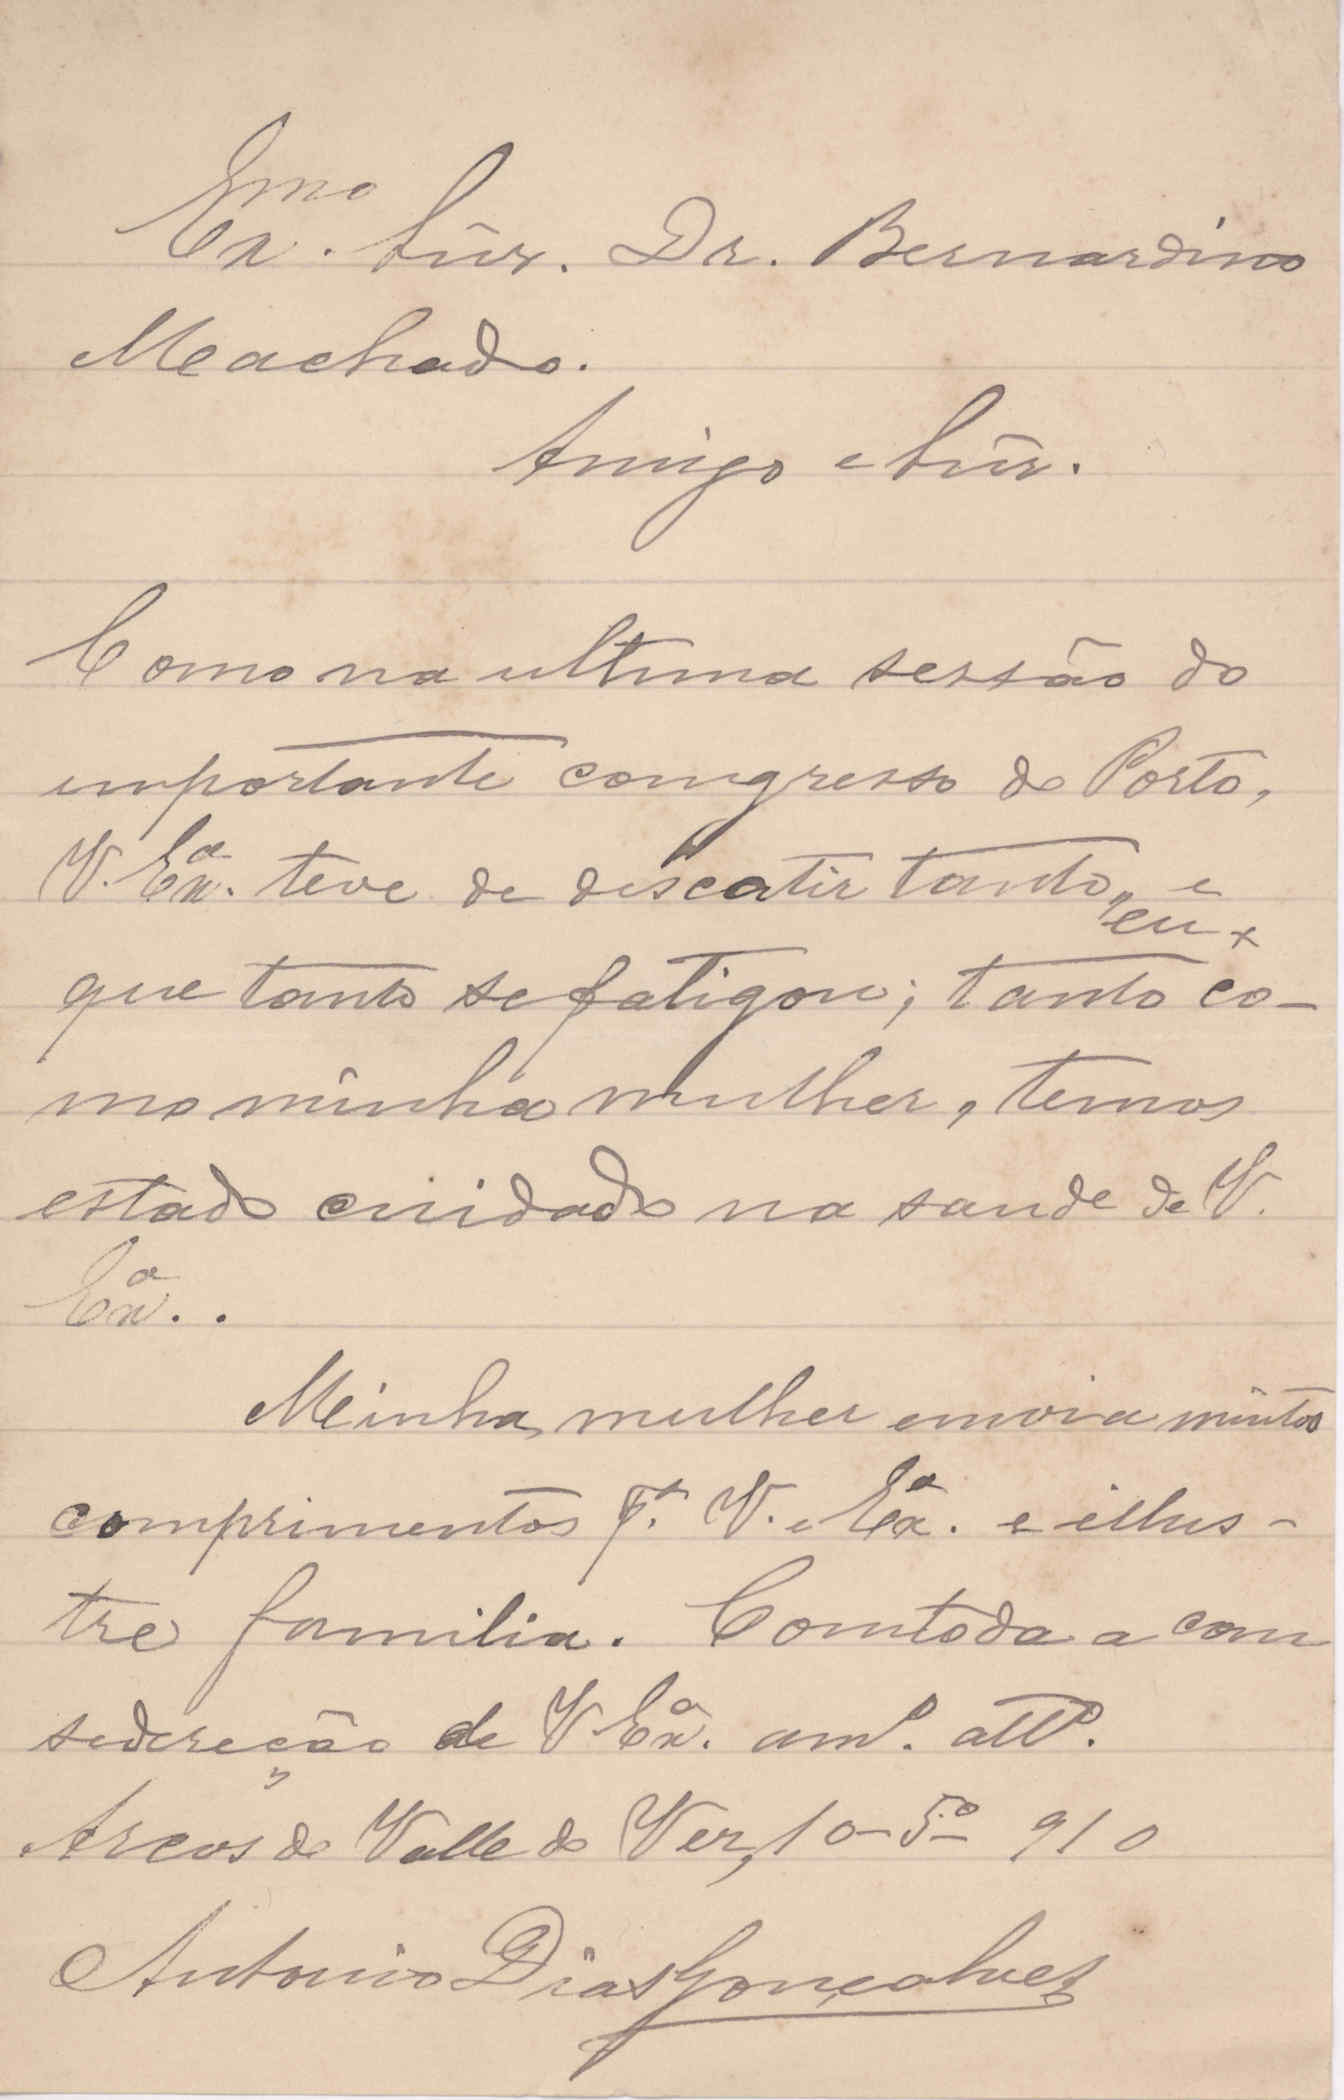 Exmo. Snr. Dr. Bernardino
Machado.
Amigo e Snr.
Como na ultima sessão do
importante comgresso do Porto,
V. Exa. teve de descatir tanto, e
que tanto se fatigou; tanto eu x co-
mo minha mulher, temos
estado cuidado na saude de V.
Exa..
Meinha mulher emvia muitos
comprimentos pa. V. Exa. e illus-
tre familia. Comtoda a com
sedereção de V Exa. amo. atto.
Arcos de Valle do Vez, 10-5o- 910
Antonio Dias Gonçalves